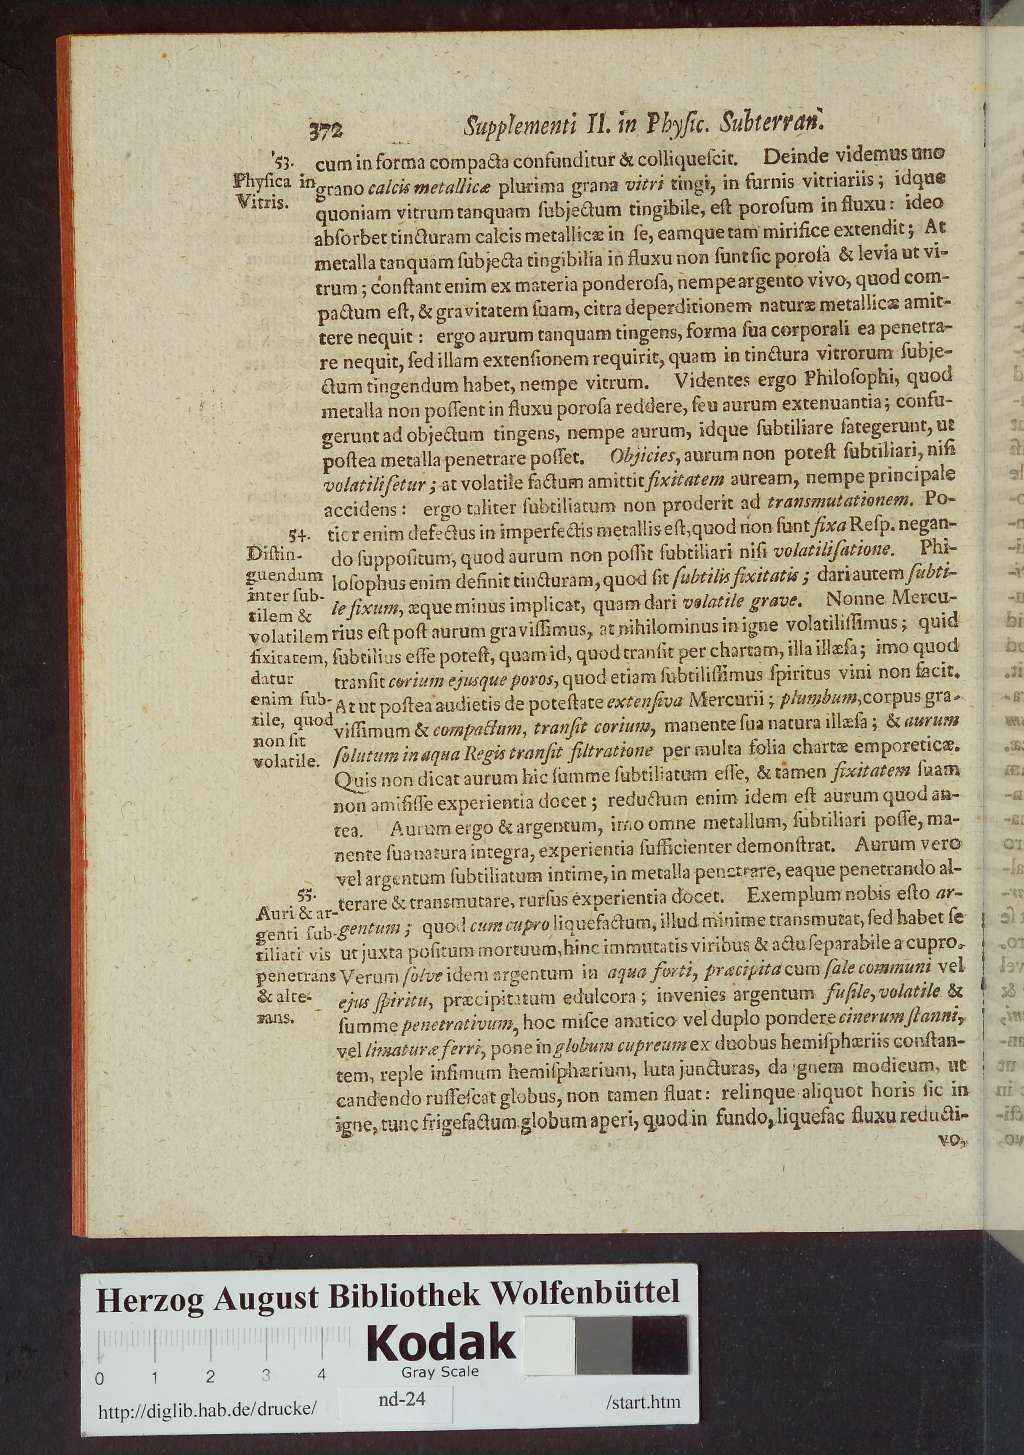 372 Supplementi II. in Phyſic. Subterran.
53.
Phyſica in
Vitris.
cum in forma compacta confunditur & colliqueſcit. Deinde videmus uno
grano calcis metallicæ plurima grana vitri tingi, in furnis vitriariis; idque
quoniam vitrum tanquam ſubjectum tingibile, eſt poroſum in fluxu: ideo
abſorbet tincturam calcis metallicæ in ſe, eamque tam mirifice extendit; At
metalla tanquam ſubjecta tingibilia in fluxu non ſunt ſic poroſa & levia ut vi-
trum; conſtant enim ex materia ponderoſa, nempe argento vivo, quod com-
pactum eſt, & gravitatem ſuam, citra deperditionem naturæ metallicæ amit-
tere nequit: ergo aurum tanquam tingens, forma ſua corporali ea penetra-
re nequit, ſed illam extenſionem requirit, quam in tinctura vitrorum ſubje-
ctum tingendum habet, nempe vitrum. Videntes ergo Philoſophi, quod
metalla non poſſent in fluxu poroſa reddere, ſeu aurum extenuantia; confu-
gerunt ad objectum tingens, nempe aurum, idque ſubtiliare ſategerunt, ut
poſtea metalla penetrare poſſet. Objicies, aurum non poteſt ſubtiliari, niſi
volatiliſetur; at volatile factum amittit fixitatem auream, nempe principale
accidens: ergo taliter ſubtiliatum non proderit ad transmutationem. Po-
54.
Diſtin-
guendum
inter ſub-
tilem &
volatilem
fixitatem,
datur
enim ſub-
tile, quod
non ſit
volatile.
tior enim defectus in imperfectis metallis eſt, quod non ſunt fixa Reſp. negan-
do ſuppoſitum, quod aurum non poſſit ſubtiliari niſi volatiliſatione. Phi-
loſophus enim definit tincturam, quod ſit ſubtilis fixitatis; dari autem ſubti-
le fixum, æque minus implicat, quam dari volatile grave. Nonne Mercu-
rius eſt poſt aurum graviſſimus, at nihilominus in igne volatiliſſimus; quid
ſubtilius eſſe poteſt, quam id, quod tranſit per chartam, illa illæſa; imo quod
tranſit corium ejusque poros, quod etiam ſubtiliſſimus ſpiritus vini non facit.
At ut poſtea audietis de poteſtate extenſiva Mercurii; plumbum, corpus gra-
viſſimum & compactum, tranſit corium, manente ſua natura illæſa; & aurum
ſolutum in aqua Regis tranſit filtratione per multa folia chartæ emporeticæ.
Quis non dicat aurum hic ſumme ſubtiliatum eſſe, & tamen fixitatem ſuam
non amiſiſſe experientia docet; reductum enim idem eſt aurum quod an-
tea. Aurum ergo & argentum, imo omne metallum, ſubtiliari poſſe, ma-
nente ſua natura integra, experientia ſufficienter demonſtrat. Aurum vero
vel argentum ſubtiliatum intime, in metalla penetrare, eaque penetrando al-
55.
Auri & ar-
genti ſub-
tiliati vis
penetrans
& alte-
rans.
terare & transmutare, rurſus experientia docet. Exemplum nobis eſto ar-
gentum; quod cum cupro liquefactum, illud minime transmutat, ſed habet ſe
ut juxta poſitum mortuum, hinc immutatis viribus & actu ſeparabile a cupro.
Verum ſolve idem argentum in aqua forti, præcipita cum ſale communi vel
ejus ſpiritu, præcipitatum edulcora; invenies argentum fuſile, volatile &
ſumme penetrativum, hoc miſce anatico vel duplo pondere cinerum ſtanni,
vel limaturæ ferri, pone in globum cupreum ex duobus hemiſphæriis conſtan-
tem, reple infimum hemiſphærium, luta juncturas, da ignem modicum, ut
candendo ruffeſcat globus, non tamen fluat: relinque aliquot horis ſic in
igne, tunc frigefactum globum aperi, quod in fundo, liquefac fluxu reducti-
vo,
Herzog August Bibliothek Wolfenbüttel
Kodak
Gray Scale
0 1 2 3 4
http://diglib.hab.de/drucke/ nd-24 /start.htm